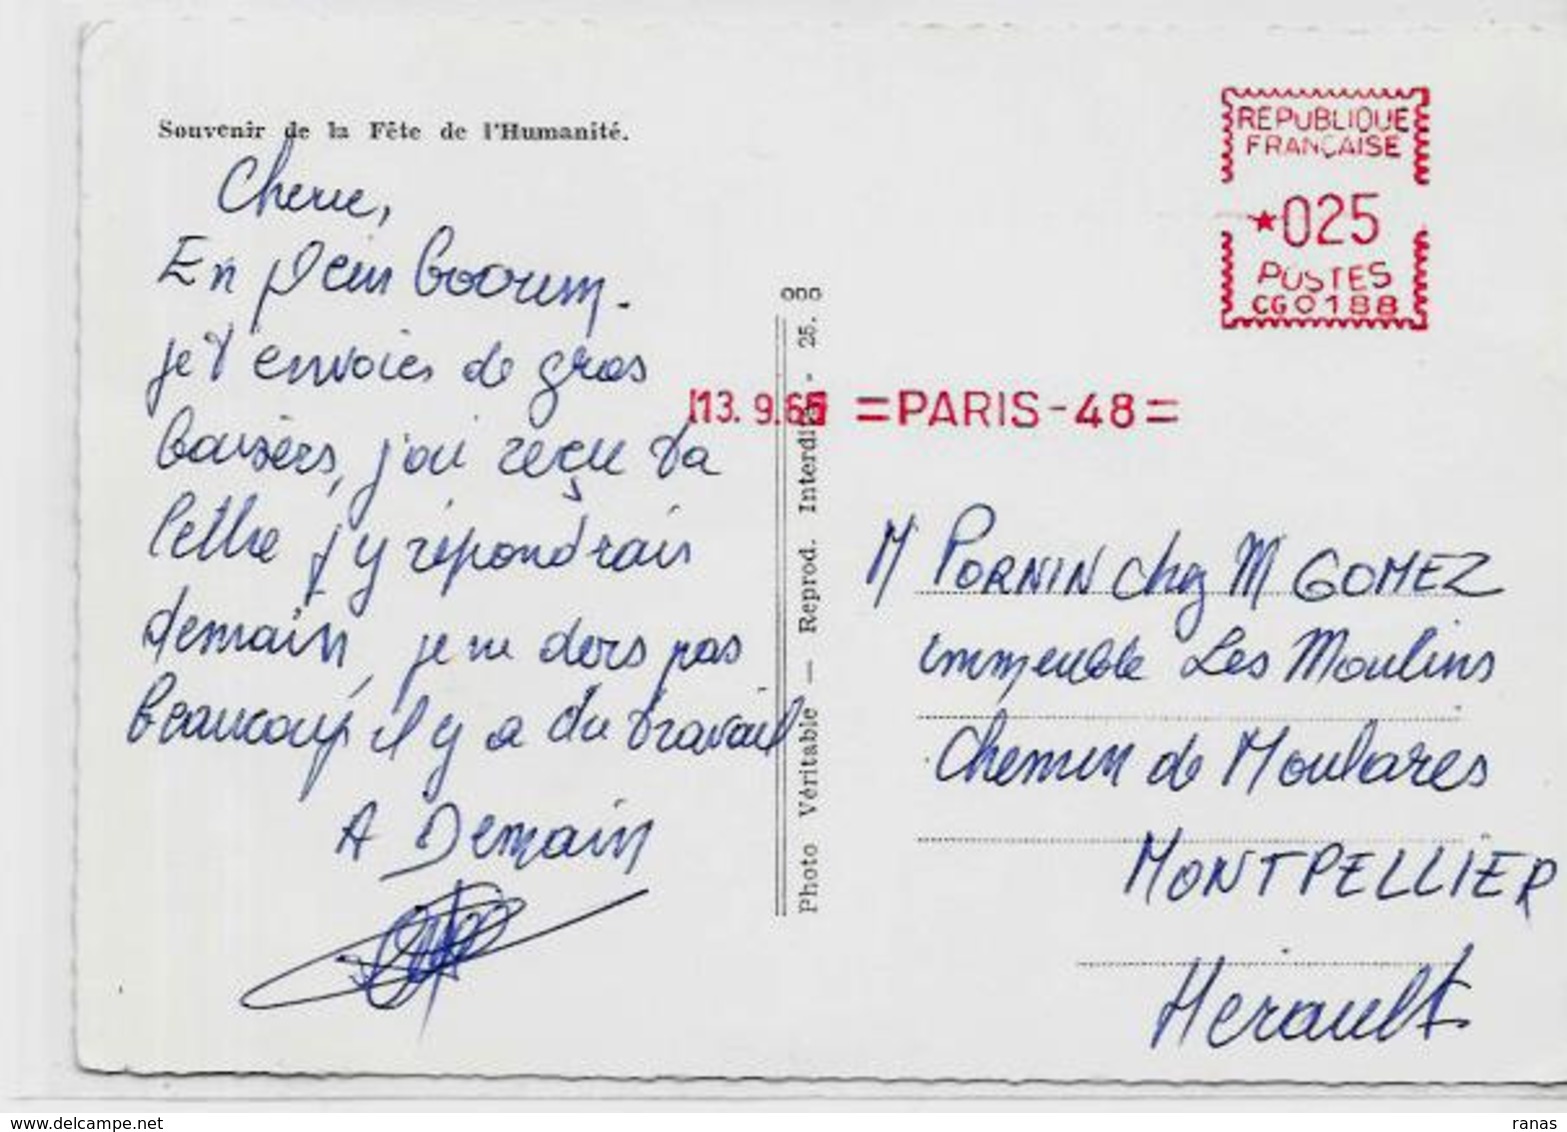 Souvenir de la Fête de l'Humanité.
Cherie,
En plein boourm.
je t'envoies de gros
baisèrs, j'ai reçu ta
lettre j'y répondrais
demain, je ne dors pas
beaucoup il y a du travail
A Demain
REPUBLIQUE
FRANÇAISE
*025
POSTES
CG 0188
13.9.65 =PARIS-48=
Photo Véritable — Reprod. Interdite - 25.
M PORNIN chez M GOMEZ
immeuble Les Moulins
Chemin de Moulares
MONTPELLIER
Herault
delcampe.net
ranas